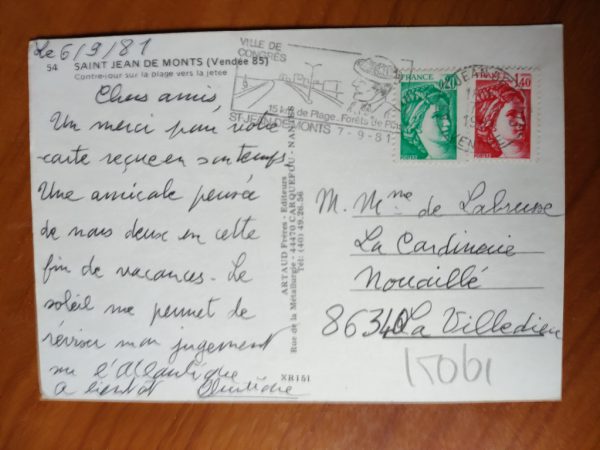 Le 6/9/81
54 SAINT JEAN DE MONTS (Vendée 85)
Contre-jour sur la plage vers la jetée
Chers amis,
Un merci pour votre
carte reçue en son temps.
Une amicale pensée
de nous deux en cette
fin de vacances. Le
soleil me permet de
réviser mon jugement
sur l'Atlantique
A bientôt
ARTAUD Frères - Editeurs
Rue de la Métallurgie - 44470 CARQUEFOU - NANTES
Tél: (40) 49.26.56
XR151
VILLE DE
CONGRÈS
15 km de Plage. Forêts de
ST JEAN DE MONTS 7-9-81
FRANCE
0,20
FRANCE
1,40
M. Mme de
La Cardinerie
Nouaillé
86340 La Villedieu